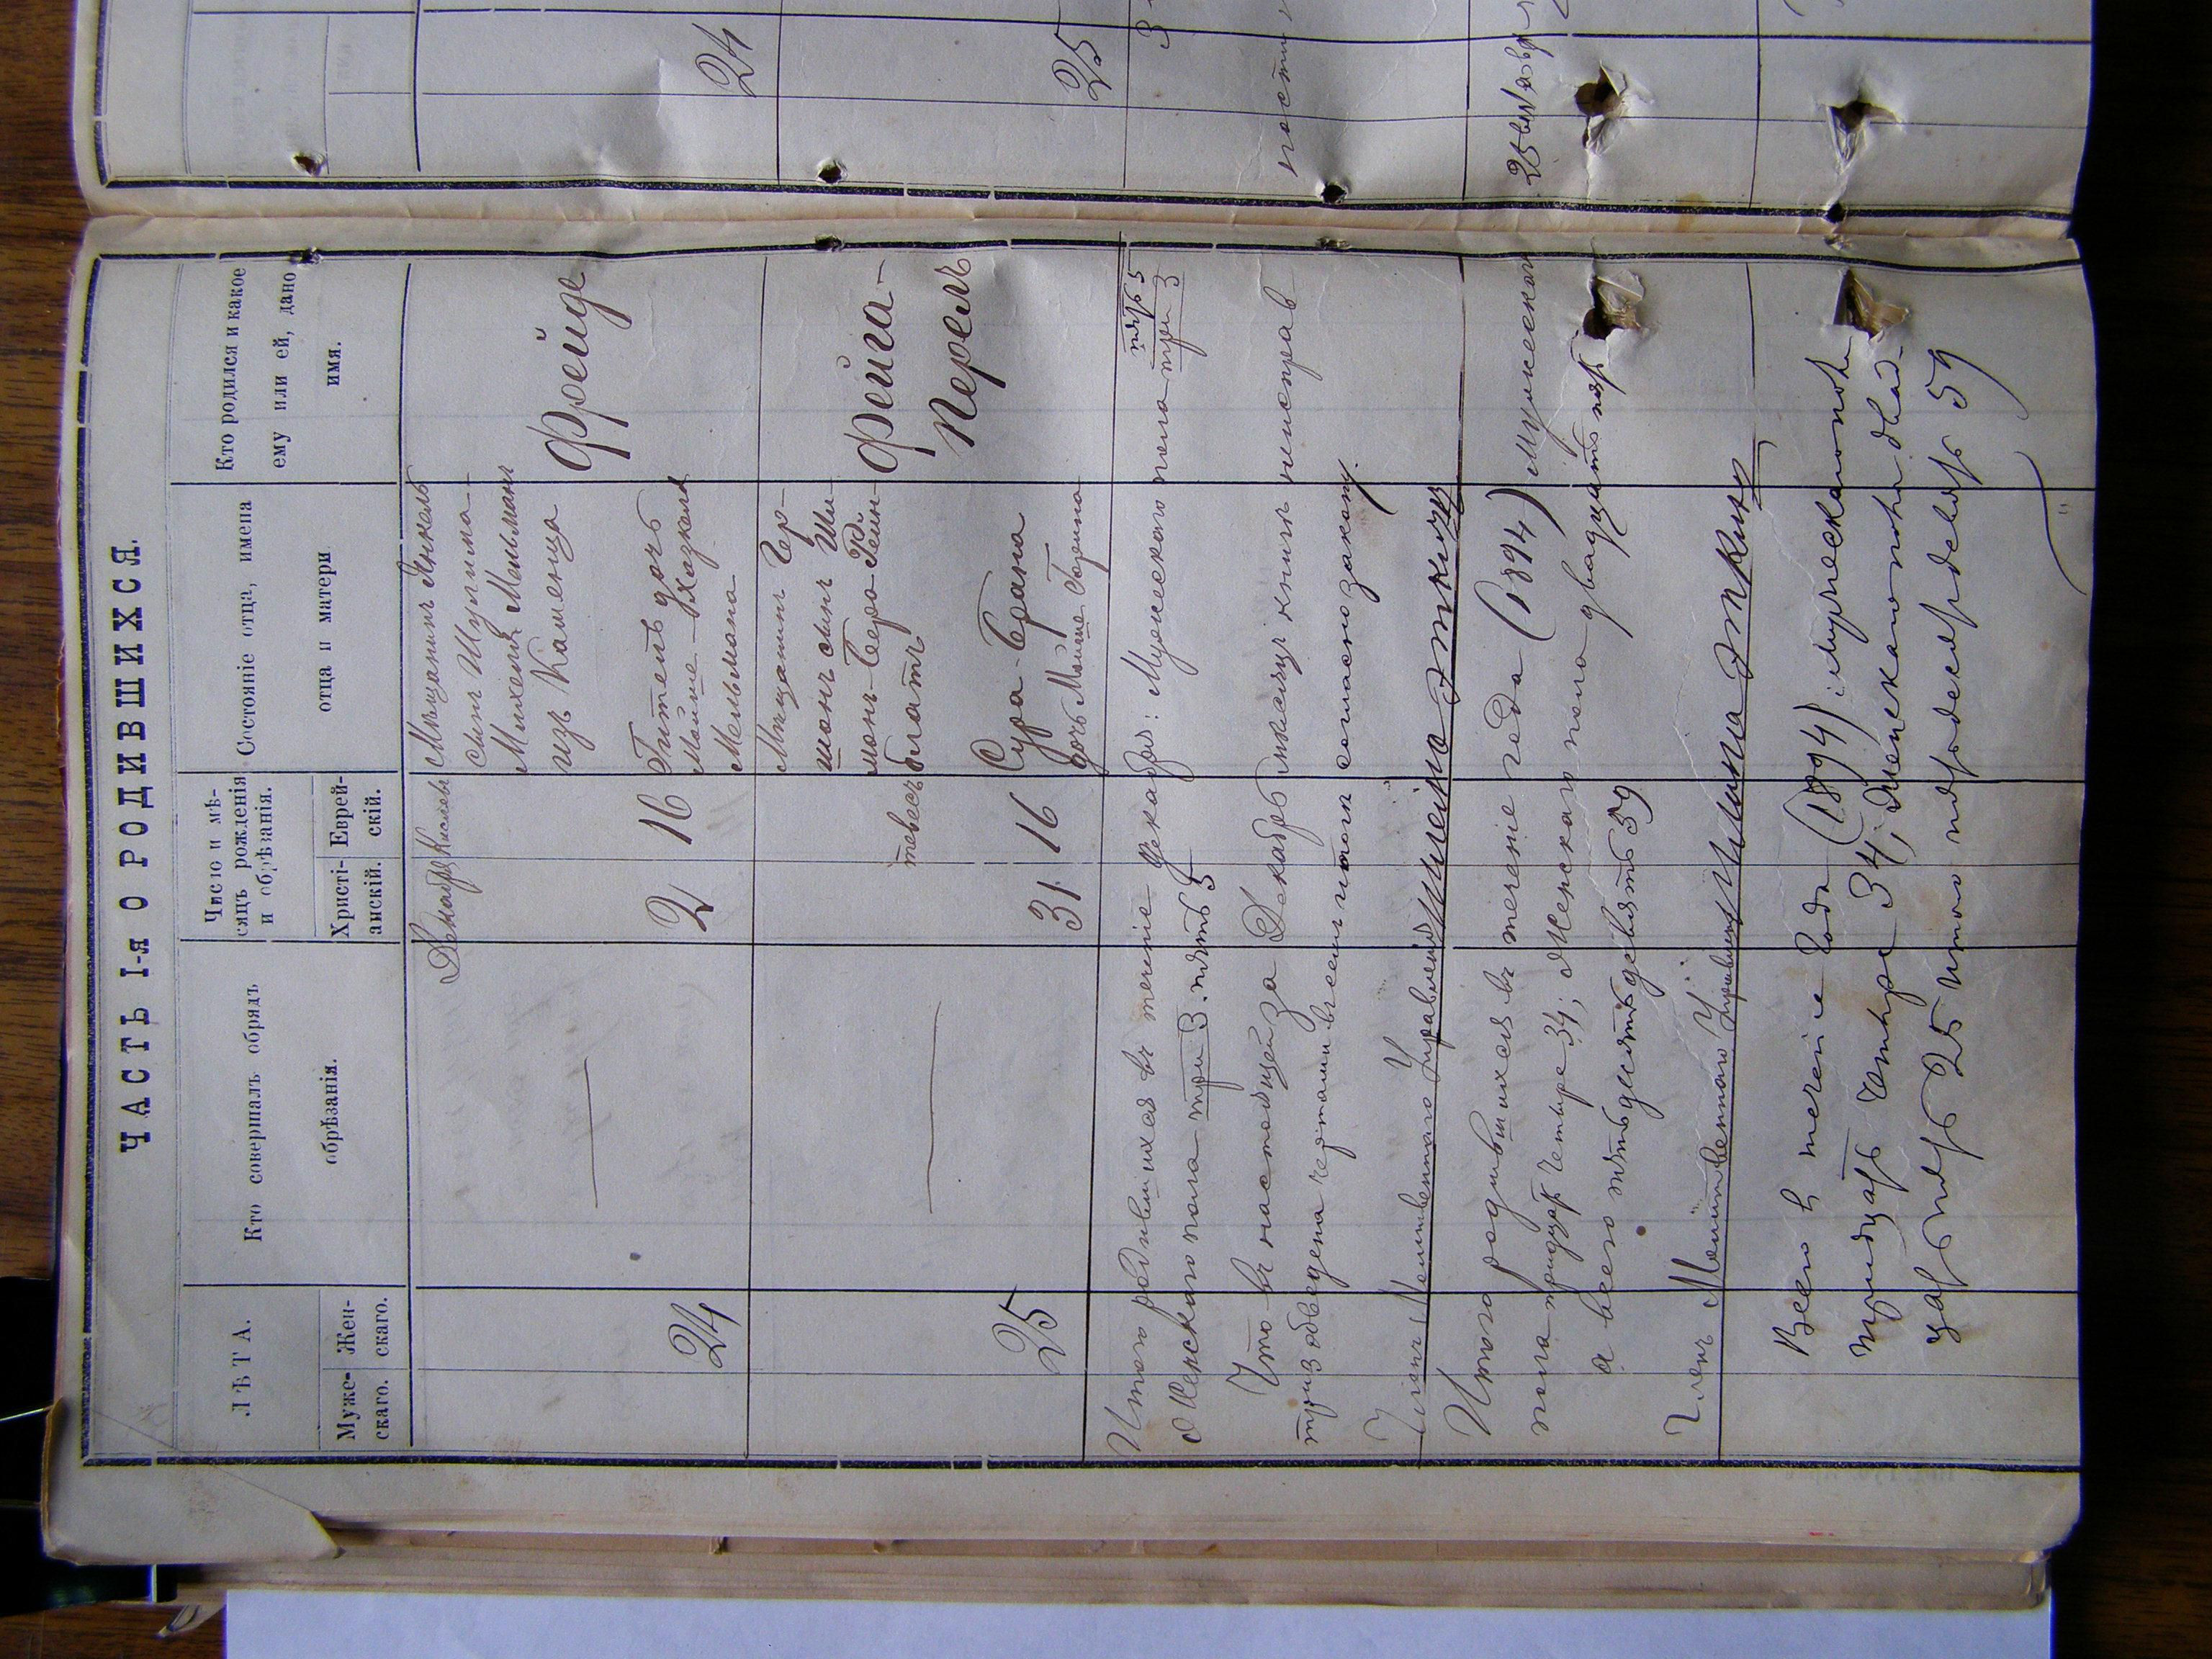 ЧАСТЬ I-я О РОДИВШИХСЯ.
ЛѢТА.
Муже-
скаго.
Жен-
скаго.
Кто совершалъ обрядъ
обрѣзанія.
Число и мѣ-
сяцъ рожденія
и обрѣзанія.
Христі-
анскій.
Еврей-
скій.
Состояніе отца, имена
отца и матери
Кто родился и какое
ему или ей, дано
имя.
Декабрь Кислевъ
24
2 16
Мѣщанинъ Янкель
сынъ Шулима-
Михеля Мельманъ
изъ Каменца
Гитель дочь
Мойше-Хазкеля
Мельмана
Фрейде
25
31 16
тевесъ
Мѣщанинъ Гер-
шонъ сынъ Ши-
монъ-Бера Рейн-
блатъ
Сура-Брана
дочь Мойше
Фейга-
Перель
Итого родившихся въ теченіе декабря: Мужескаго пола три 3
Женскаго пола три 3. пять 5
пять 5
Что въ настоящей за Декабрь мѣсяцъ книгѣ неисправ
ности
три 3 обведена чертами въ семъ итогѣ согласно закону.
Членъ Молитвеннаго Управленія
Итого родившихся въ теченіе года (1894) Мужескаго
пола тридцать четыре 34; Женскаго пола двадцать пять
25
а всего пятьдесятъ девять 59
Членъ Молитвеннаго Управленія
Всего в течении года (1894) Мужеска пола
тридцать четыре 34, Женска пола двад-
цать пять 25 итого пятьдесят девять 59
24
25
3